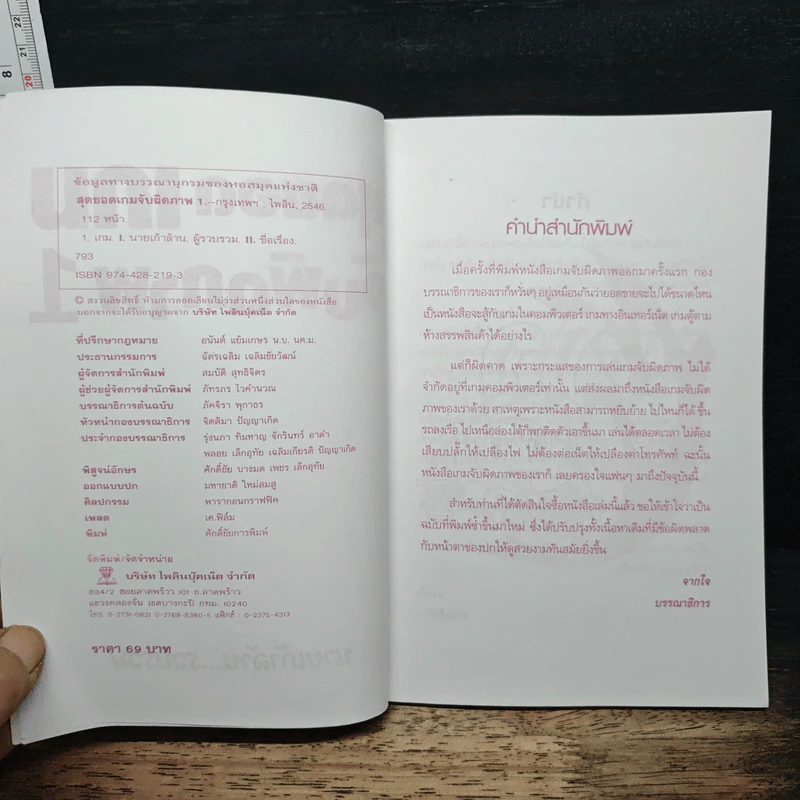 8
20
21
22
ข้อมูลทางบรรณานุกรมของหอสมุดแห่งชาติ
สุดยอดเกมจับผิดภาพ 1.--กรุงเทพฯ : ไพลิน, 2546.
112 หน้า.
1. เกม. I. นายเก้าล้าน, ผู้รวบรวม. II. ชื่อเรื่อง.
793
ISBN 974-428-219-3
© สงวนลิขสิทธิ์ ห้ามการลอกเลียนไม่ว่าส่วนหนึ่งส่วนใดของหนังสือ
นอกจากจะได้รับอนุญาตจาก บริษัท ไพลินบุ๊คเน็ต จำกัด
ที่ปรึกษากฎหมาย อนันต์ แย้มเกษร น.บ. นศ.ม.
ประธานกรรมการ ฉัตรเฉลิม เฉลิมชัยวัฒน์
ผู้จัดการสำนักพิมพ์ สมบัติ สุทธิจิตร
ผู้ช่วยผู้จัดการสำนักพิมพ์ ภัทรภร ไวคำนวณ
บรรณาธิการต้นฉบับ ภัคจิรา พุกาธร
หัวหน้ากองบรรณาธิการ จิตติมา ปัญญาเกิด
ประจำกองบรรณาธิการ รุ่งนภา ทิมหาญ จักรินทร์ อาดำ
พลอย เล็กอุทัย เฉลิมเกียรติ ปัญญาเกิด
พิสูจน์อักษร ศักดิ์ชัย บางมด เพชร เล็กอุทัย
ออกแบบปก มหาชาติ ใหม่สมสู
ศิลปกรรม พารากอนกราฟฟิค
เพลต เค.ฟิล์ม
พิมพ์ ศักดิ์ชัยการพิมพ์
จัดพิมพ์/จัดจำหน่าย
บริษัท ไพลินบุ๊คเน็ต จำกัด
834/2 ซอยลาดพร้าว 101 ถ.ลาดพร้าว
แขวงคลองจั่น เขตบางกะปิ กทม. 10240
โทร. 0-2731-0621 0-2769-9360-5 แฟ็กซ์ : 0-2375-4313
ราคา 69 บาท
คำนำสำนักพิมพ์
เมื่อครั้งที่พิมพ์หนังสือเกมจับผิดภาพออกมาครั้งแรก กอง
บรรณาธิการของเราก็หวั่นๆ อยู่เหมือนกันว่ายอดขายจะไปได้ขนาดไหน
เป็นหนังสือจะสู้กับเกมในคอมพิวเตอร์ เกมทางอินเทอร์เน็ต เกมตู้ตาม
ห้างสรรพสินค้าได้อย่างไร
แต่ก็ผิดคาด เพราะกระแสของการเล่นเกมจับผิดภาพ ไม่ได้
จำกัดอยู่ที่เกมคอมพิวเตอร์เท่านั้น แต่ส่งผลมาถึงหนังสือเกมจับผิด
ภาพของเราด้วย สาเหตุเพราะหนังสือสามารถหยิบย้าย ไปไหนก็ได้ ขึ้น
รถลงเรือ ไปเหนือล่องใต้ก็พกติดตัวเอาขึ้นมา เล่นได้ตลอดเวลา ไม่ต้อง
เสียบปลั๊กให้เปลืองไฟ ไม่ต้องต่อเน็ตให้เปลืองค่าโทรศัพท์ ฉะนั้น
หนังสือเกมจับผิดภาพของเราก็ เลยครองใจแฟนๆ มาถึงปัจจุบันนี้
สำหรับท่านที่ได้ตัดสินใจซื้อหนังสือเล่มนี้แล้ว ขอให้เข้าใจว่าเป็น
ฉบับที่พิมพ์ซ้ำขึ้นมาใหม่ ซึ่งได้ปรับปรุงทั้งเนื้อหาเดิมที่มีข้อผิดพลาด
กับหน้าตาของปกให้ดูสวยงามทันสมัยยิ่งขึ้น
จากใจ
บรรณาธิการ